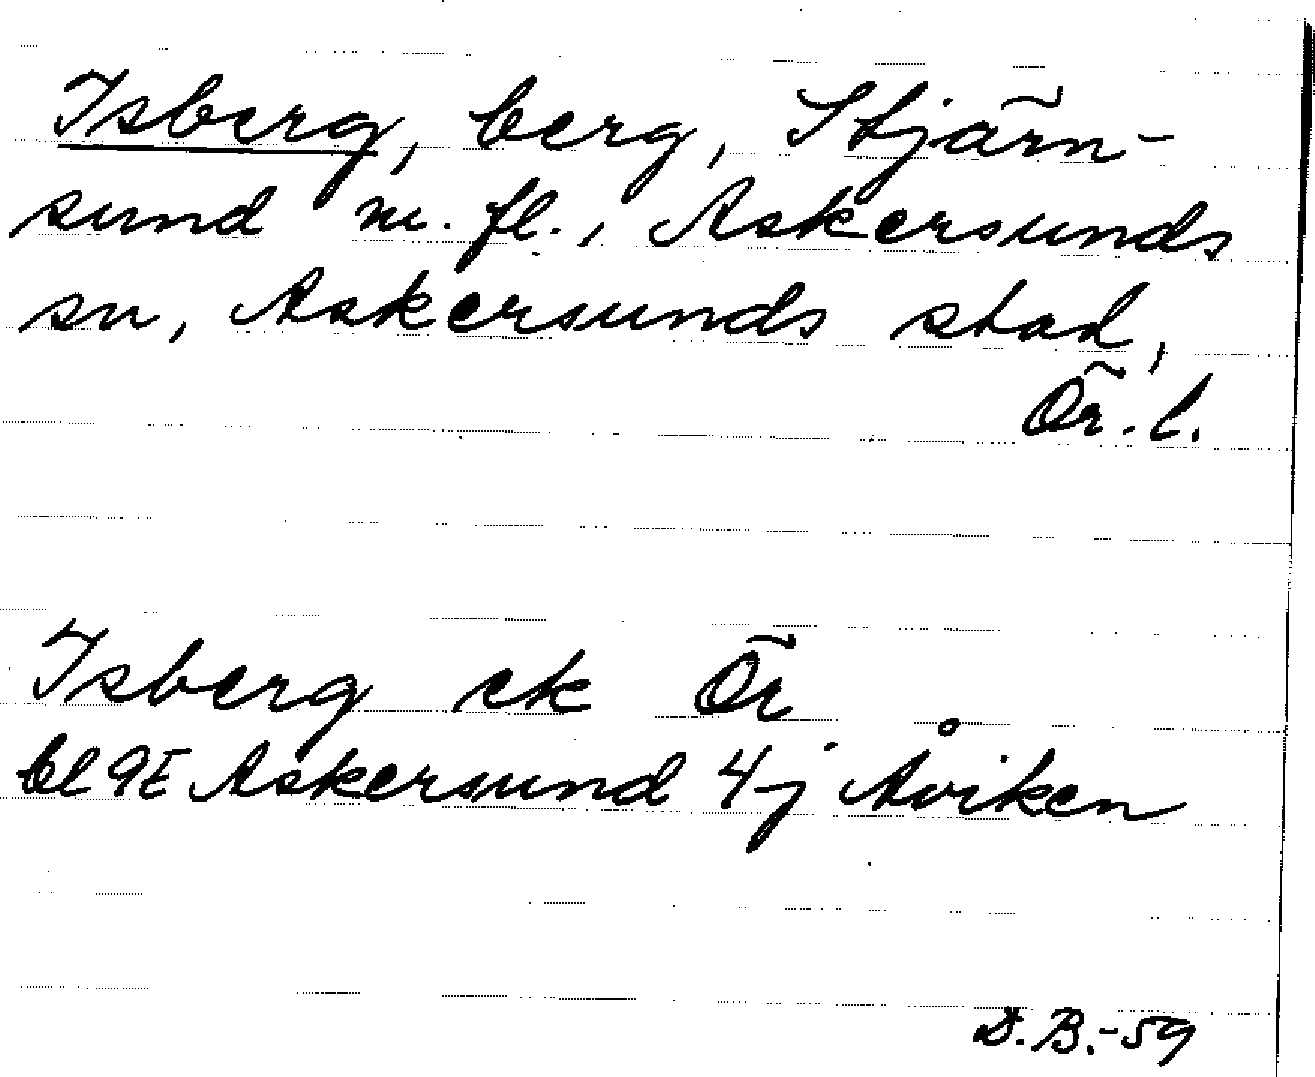 Isberg, berg, Stjärn-
sund m. fl., Askersunds
sn, Askersunds stad,
Ör. l.
Isberg ek Ör
bl 9E Askersund 4j Åviken
D.B.-59